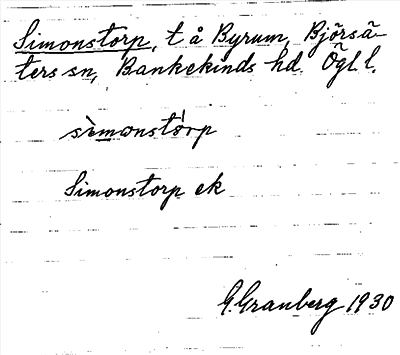 Simonstorp, t å Byrum, Björsä-
ters sn, Bankekinds hd. Ögl l.
sìmonstòrp
Simonstorp ek
G. Granberg 1930